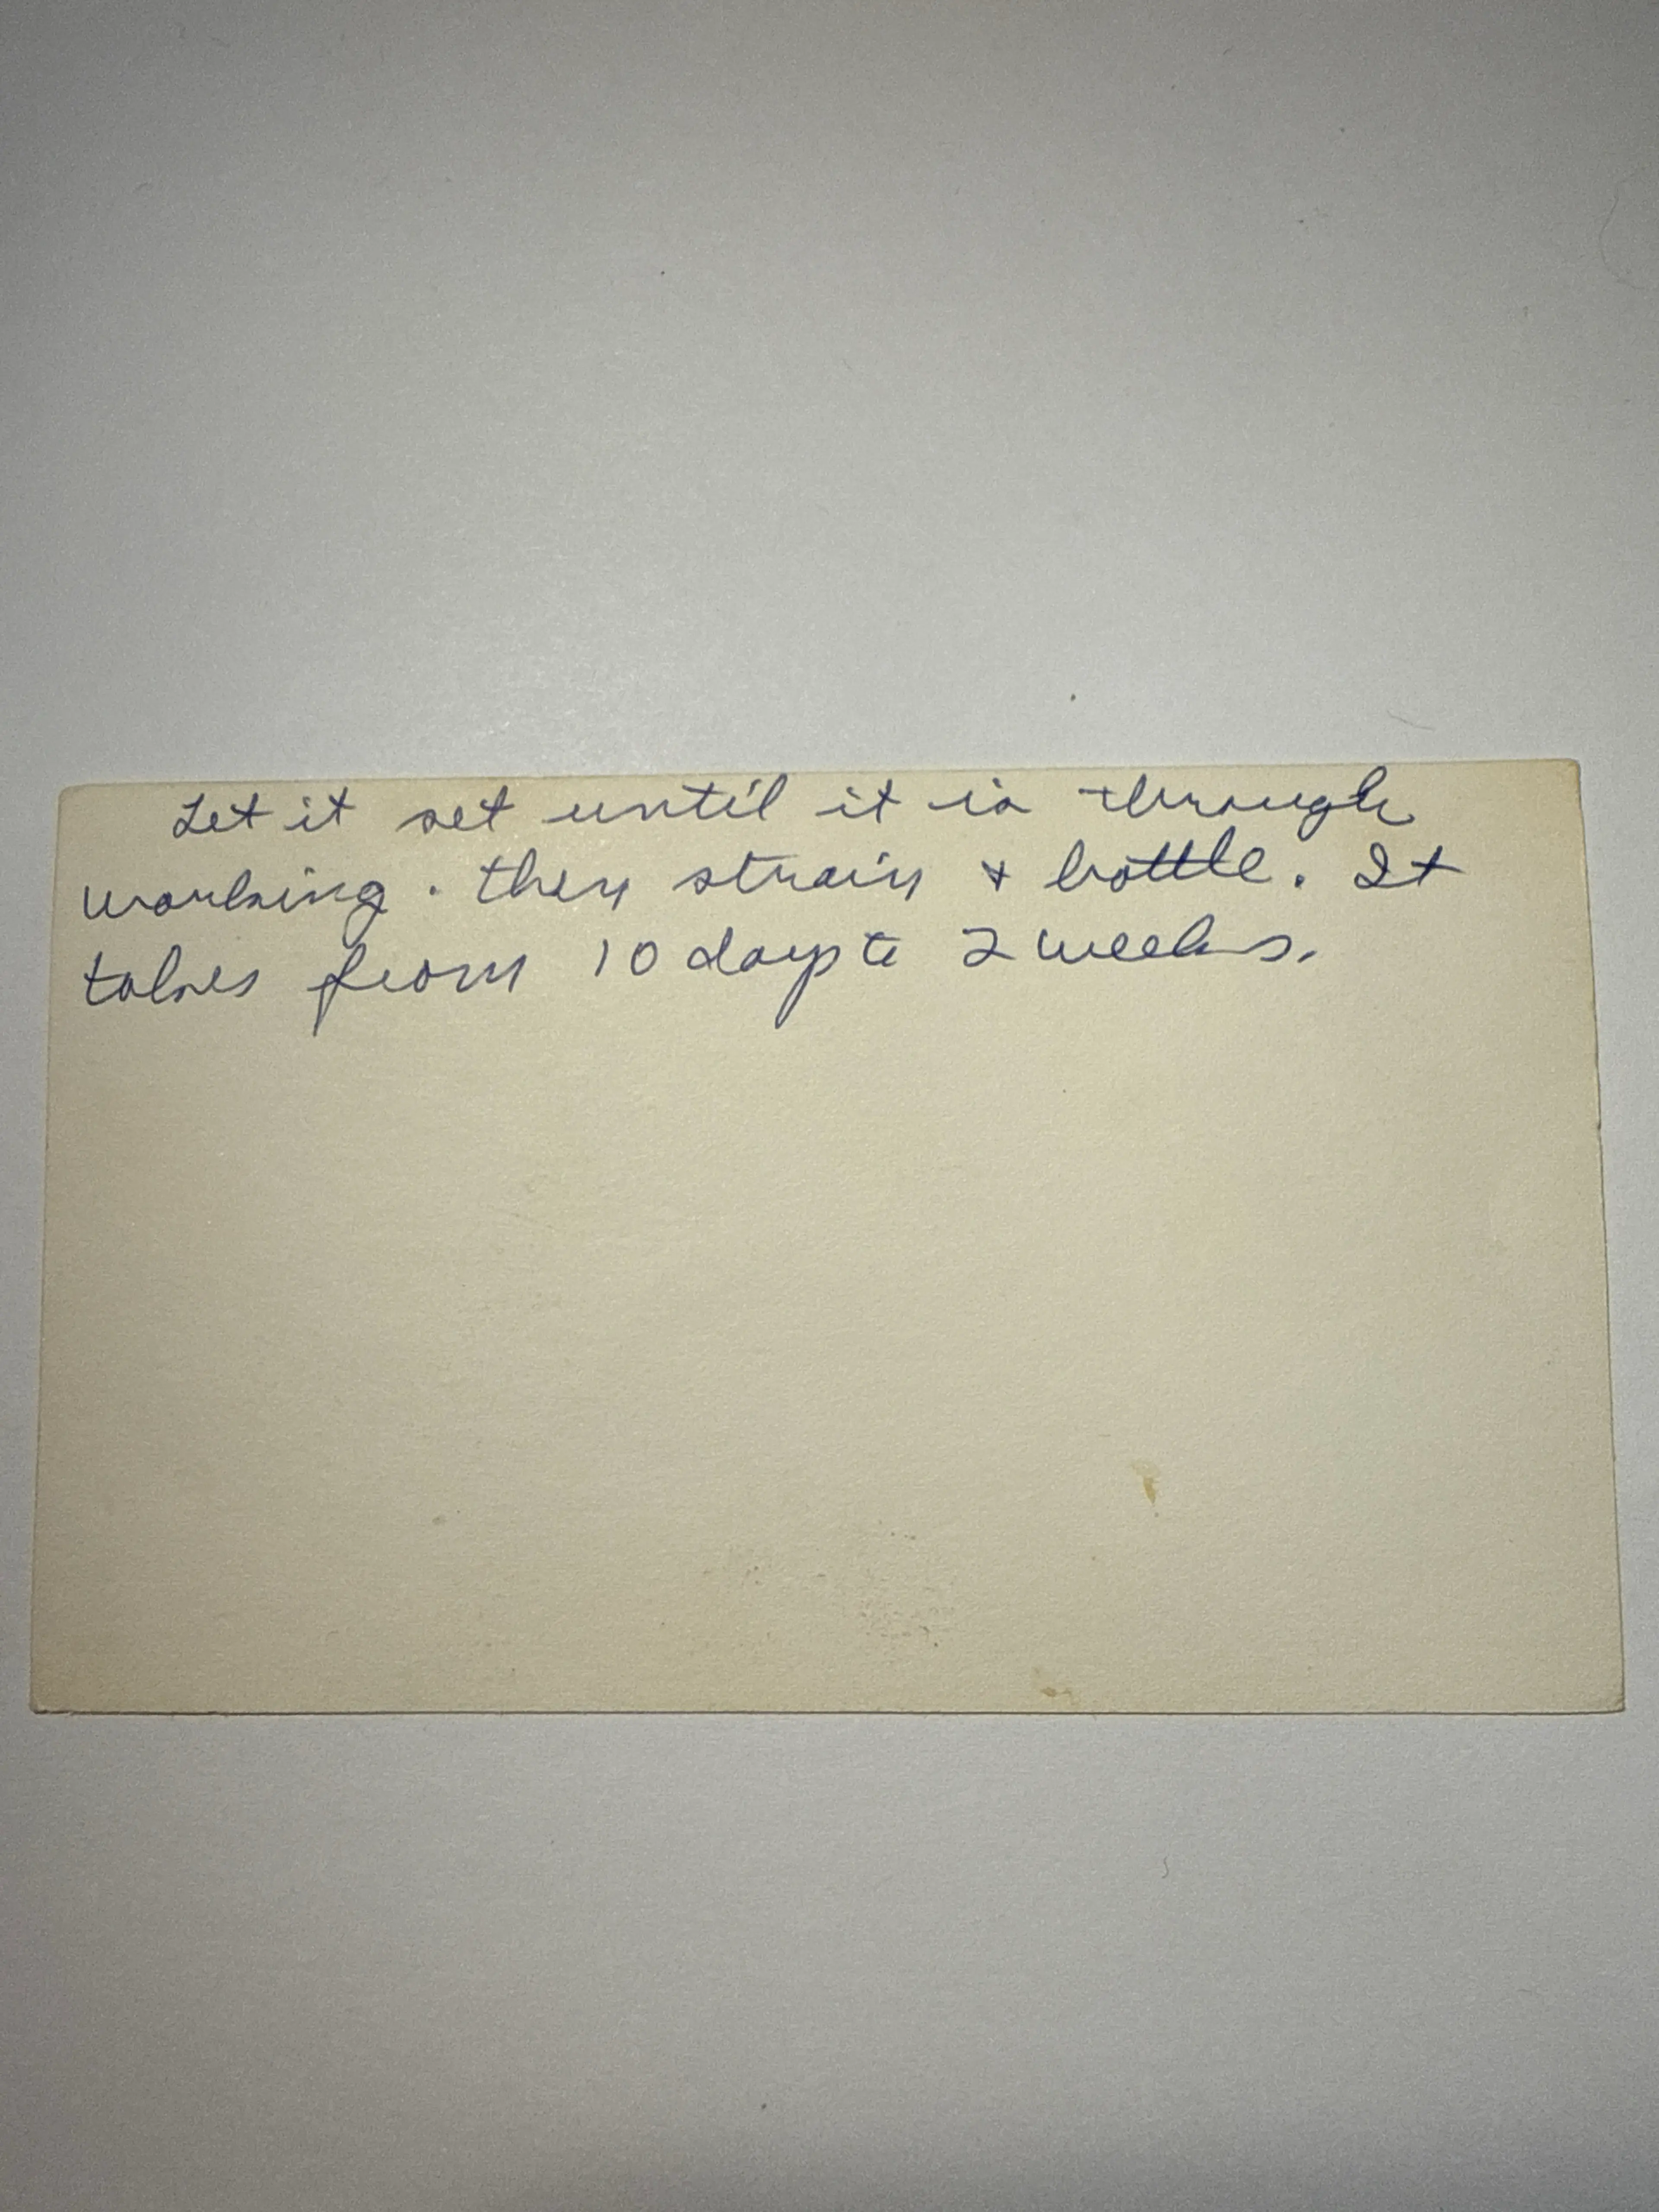 Let it set until it is through
working. then strain & bottle. It
takes from 10 days to 2 weeks.